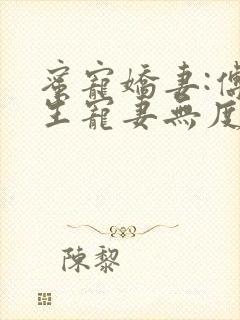 蜜寵嬌妻:傅
生寵妻無度
陳黎